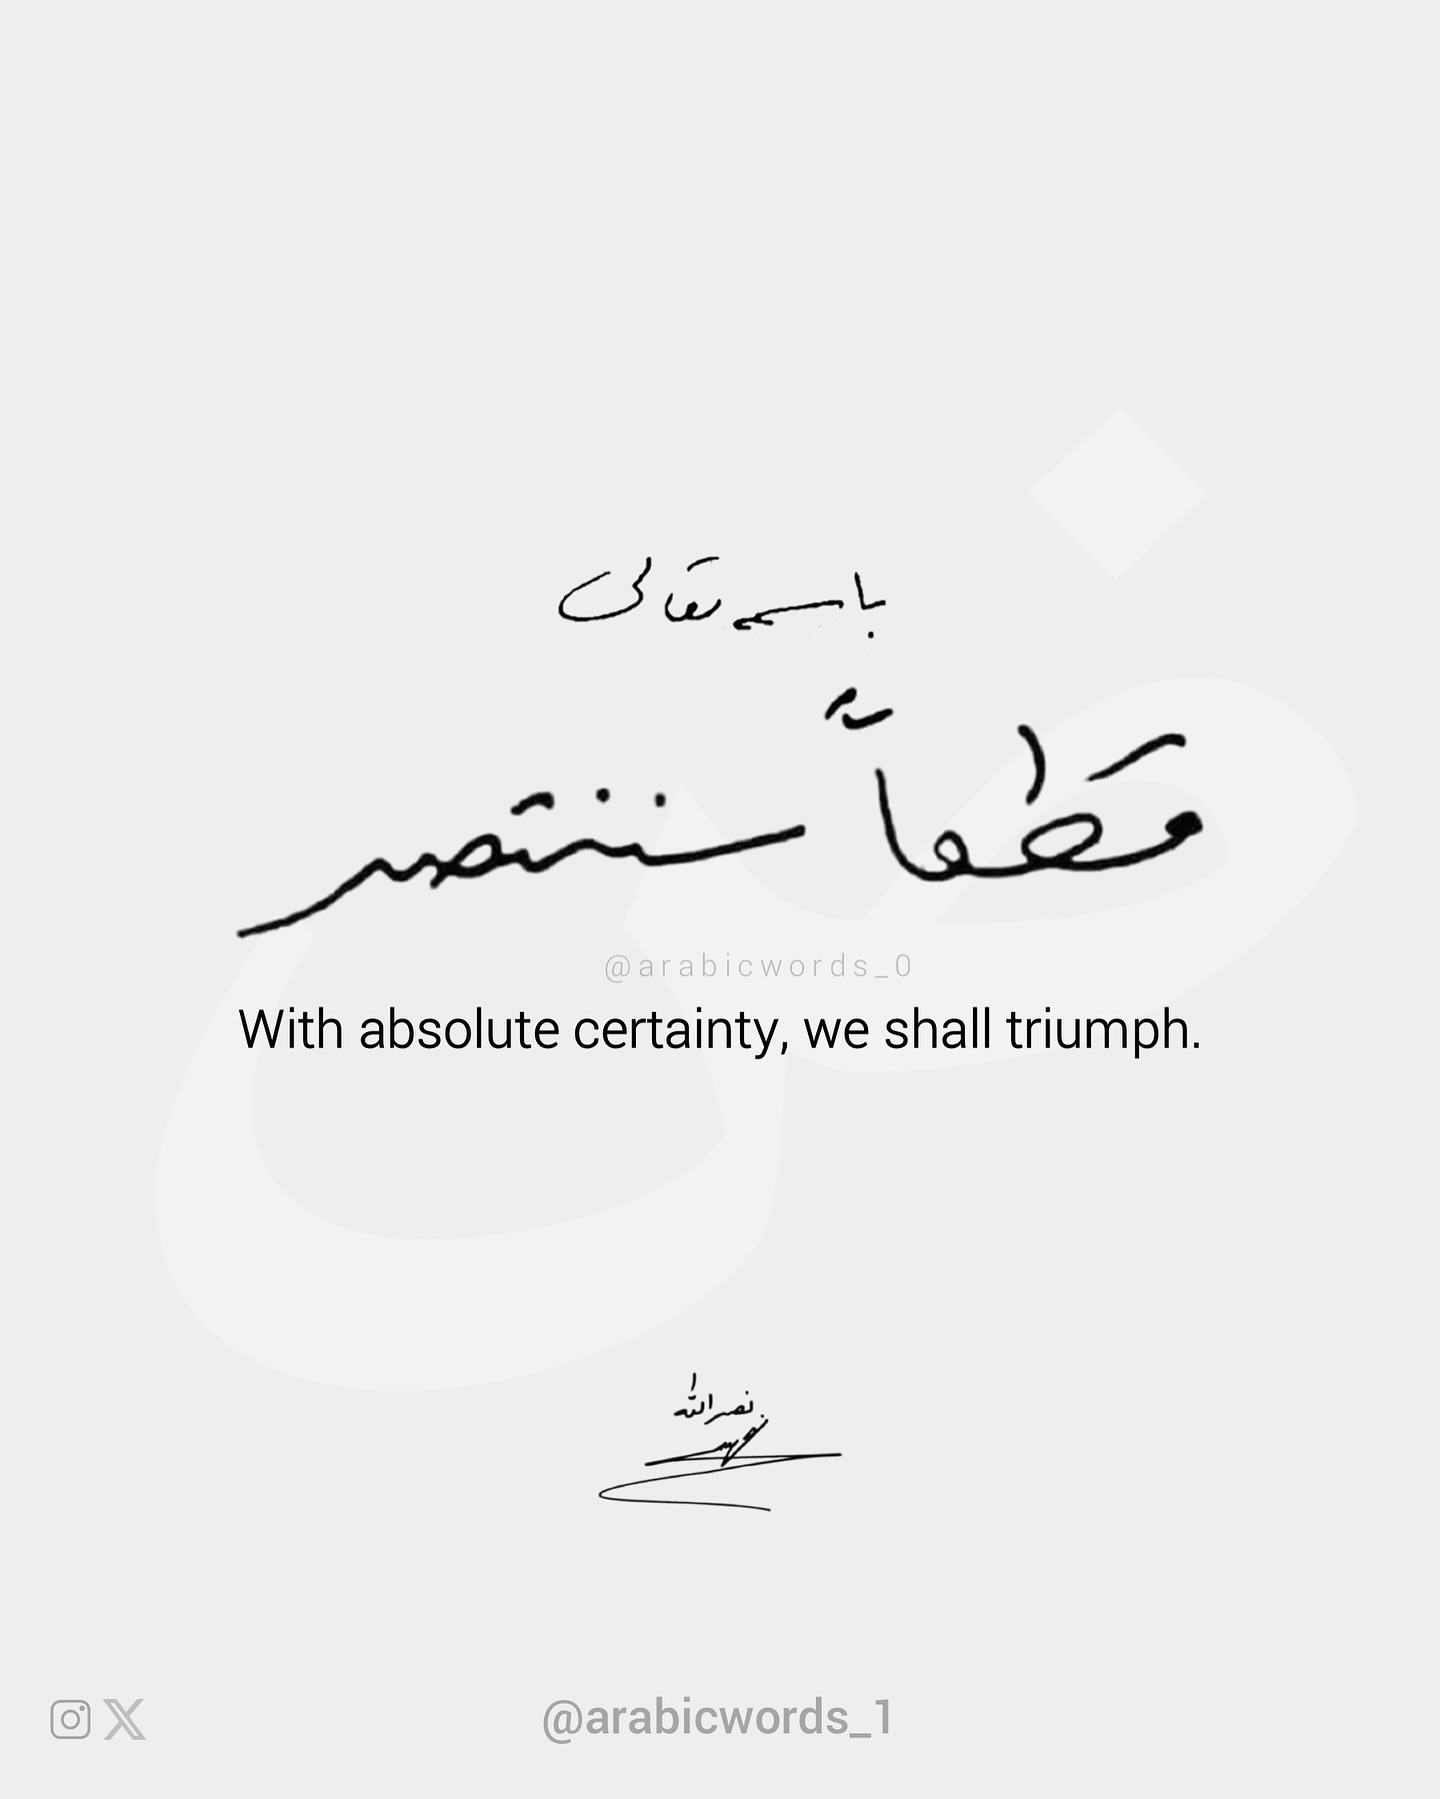 باسمه تعالى
قَطْعاً سننتصر
@arabicwords_0
With absolute certainty, we shall triumph.
نصر الله
@arabicwords_1